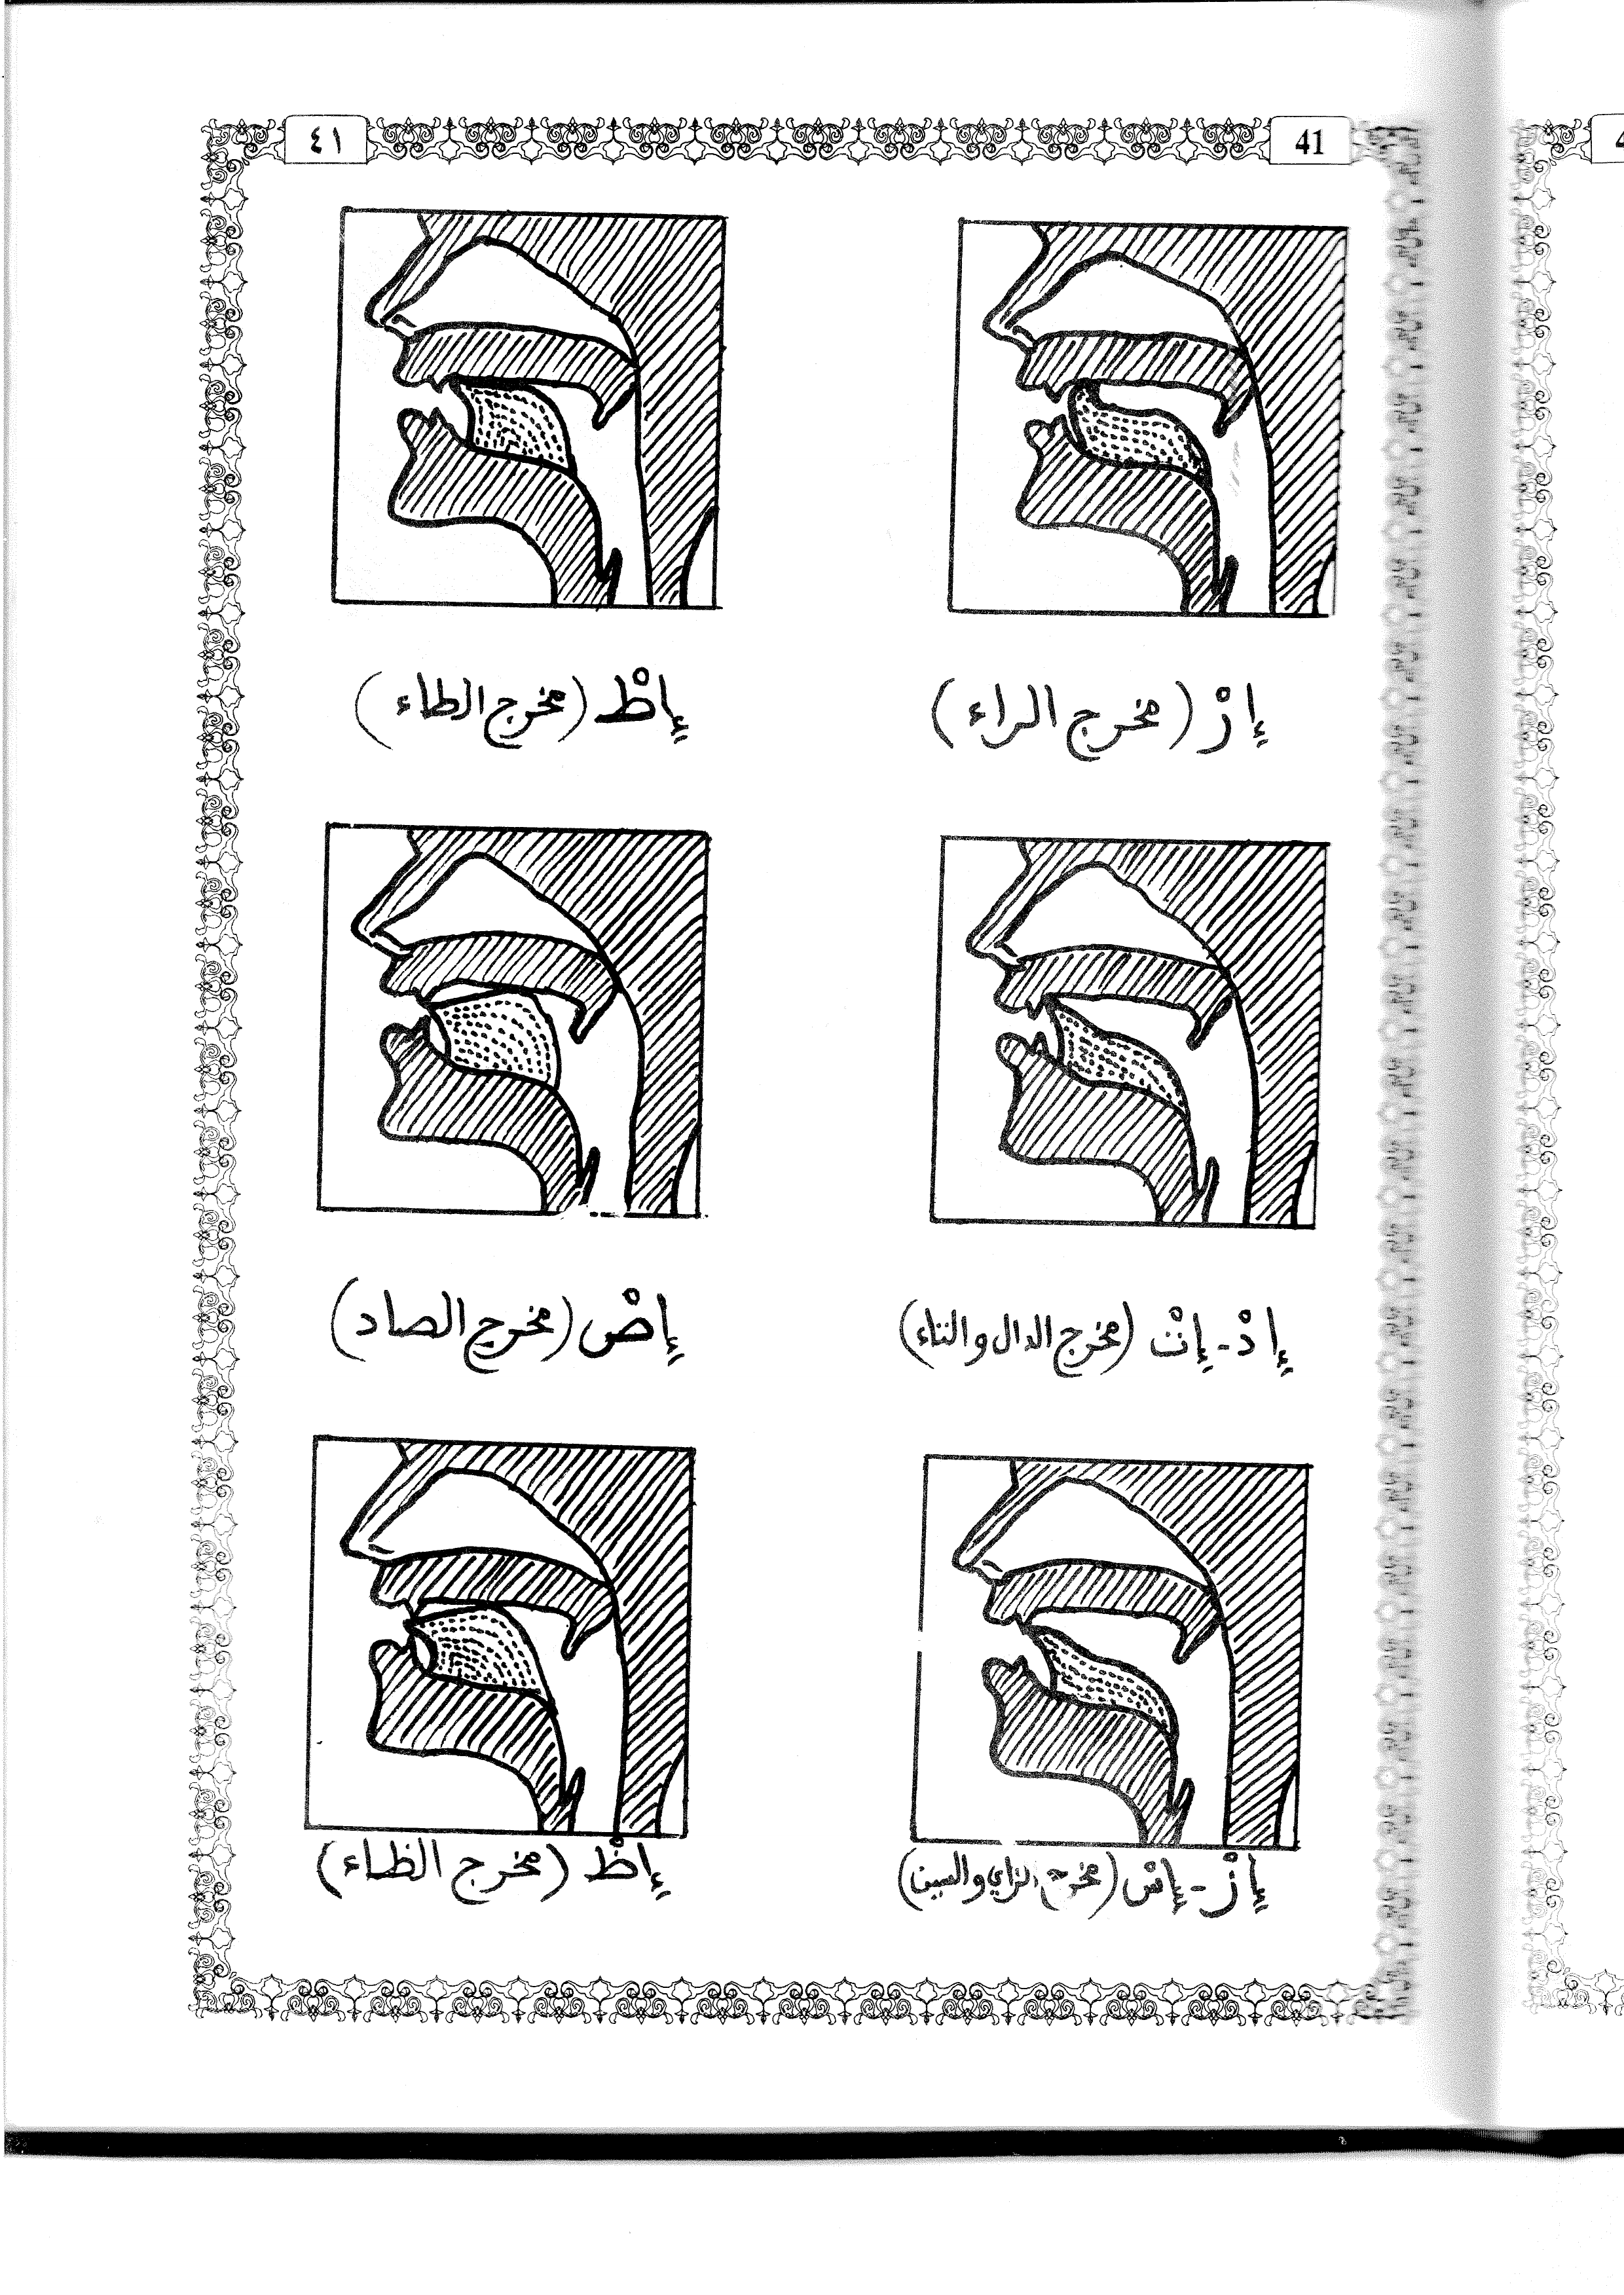 ٤١
41
إرْ (مخرج الراء)
إطْ (مخرج الطاء)
إدْ - إتْ (مخرج الدال والتاء)
إصْ (مخرج الصاد)
إزْ - إسْ (مخرج الزاي والسين)
إظْ (مخرج الظاء)